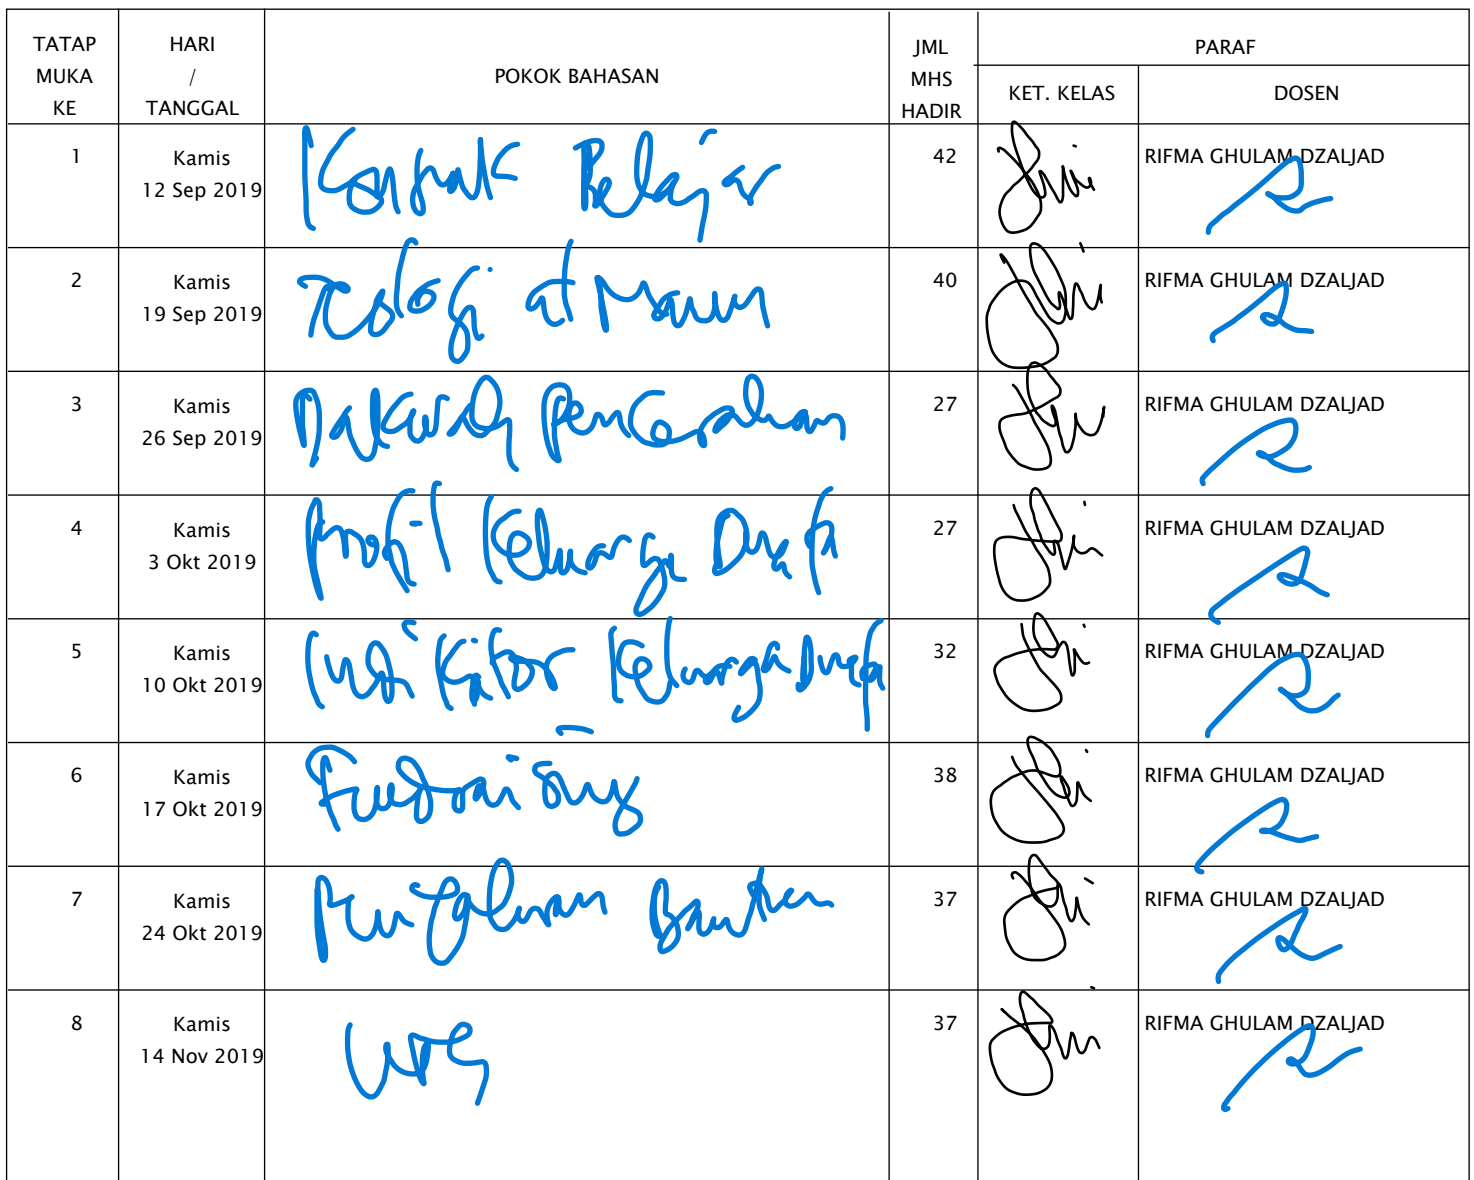 TATAP MUKA KE
HARI / TANGGAL
POKOK BAHASAN
JML MHS HADIR
PARAF
KET. KELAS
DOSEN
1
Kamis
12 Sep 2019
Kontrak Belajar
42
RIFMA GHULAM DZALJAD
2
Kamis
19 Sep 2019
Teologi al Maun
40
RIFMA GHULAM DZALJAD
3
Kamis
26 Sep 2019
Dakwah Pencerahan
27
RIFMA GHULAM DZALJAD
4
Kamis
3 Okt 2019
Profil Keluarga Duafa
27
RIFMA GHULAM DZALJAD
5
Kamis
10 Okt 2019
Indikator Keluarga Duafa
32
RIFMA GHULAM DZALJAD
6
Kamis
17 Okt 2019
Fundraising
38
RIFMA GHULAM DZALJAD
7
Kamis
24 Okt 2019
Penyaluran Bantuan
37
RIFMA GHULAM DZALJAD
8
Kamis
14 Nov 2019
UTS
37
RIFMA GHULAM DZALJAD